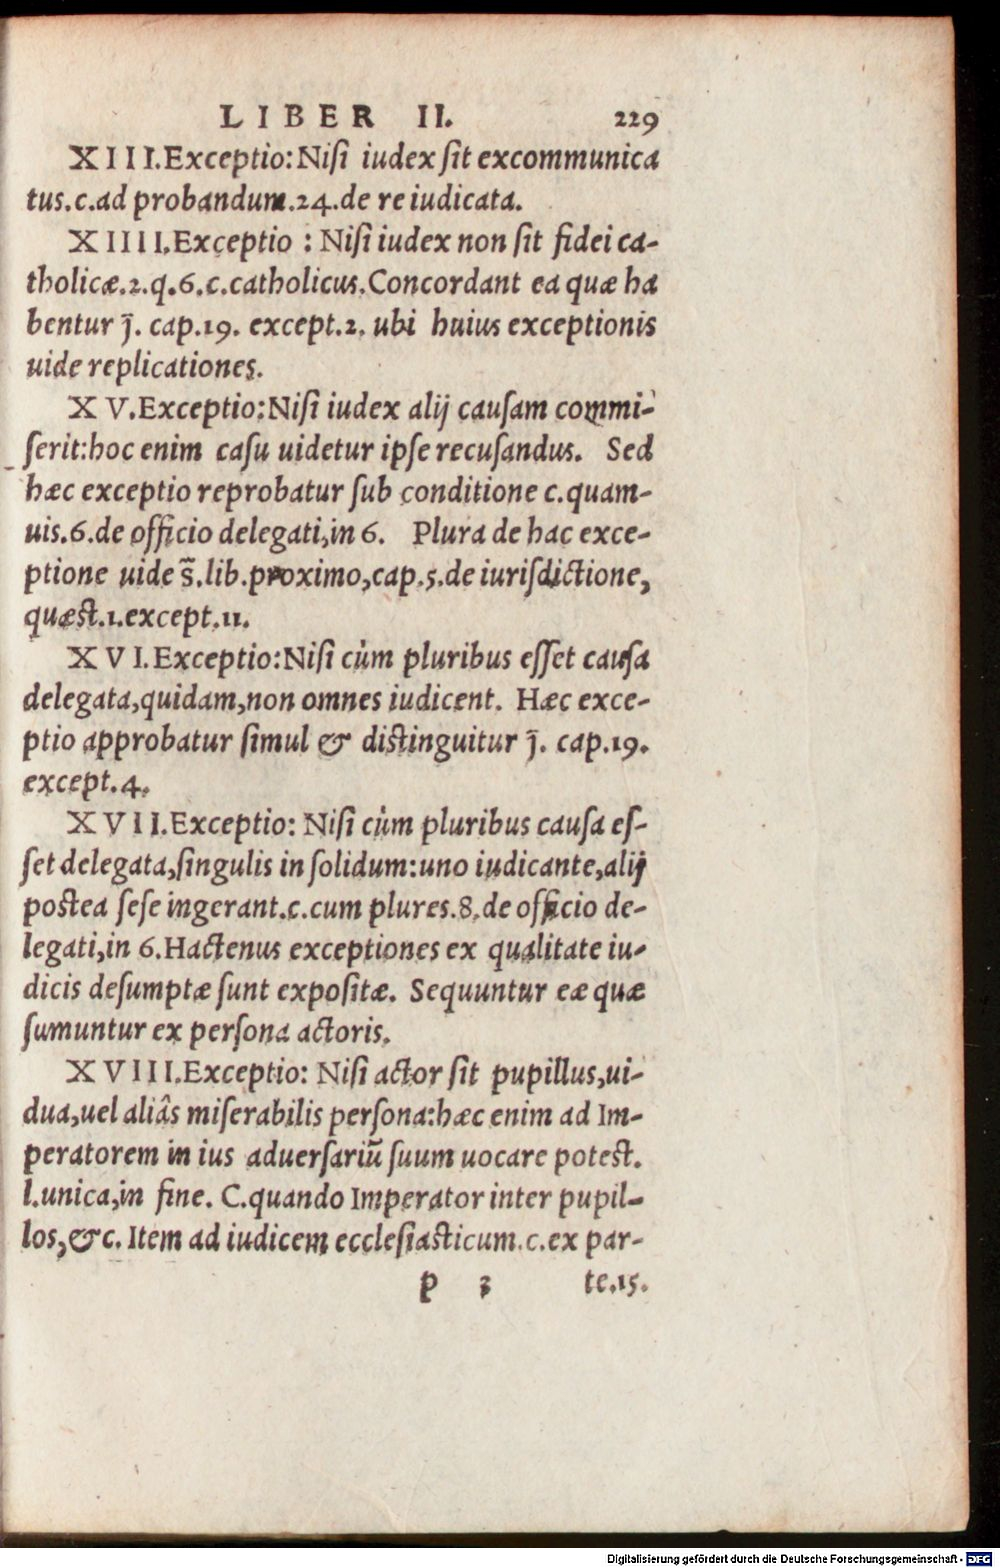 LIBER II. 229
XIII.Exceptio:Nisi iudex sit excommunica
tus.c.ad probandum.24.de re iudicata.
XIIII.Exceptio : Nisi iudex non sit fidei ca-
tholicæ.2.q.6.c.catholicus.Concordant ea quæ ha
bentur j̄. cap.19. except.2. ubi huius exceptionis
uide replicationes.
XV.Exceptio:Nisi iudex alij causam commi-
serit:hoc enim casu uidetur ipse recusandus. Sed
hæc exceptio reprobatur sub conditione c.quam-
uis.6.de officio delegati,in 6. Plura de hac exce-
ptione uide s̄.lib.proximo,cap.5.de iurisdictione,
quæst.1.except.11.
XVI.Exceptio:Nisi cùm pluribus esset causa
delegata,quidam,non omnes iudicent. Hæc exce-
ptio approbatur simul & distinguitur j̄. cap.19.
except.4.
XVII.Exceptio: Nisi cùm pluribus causa es-
set delegata,singulis in solidum:uno iudicante,alij
postea sese ingerant.c.cum plures.8.de officio de-
legati,in 6.Hactenus exceptiones ex qualitate iu-
dicis desumptæ sunt expositæ. Sequuntur eæ quæ
sumuntur ex persona actoris.
XVIII.Exceptio: Nisi actor sit pupillus,ui-
dua,uel aliâs miserabilis persona:hæc enim ad Im-
peratorem in ius aduersariū suum uocare potest.
l.unica,in fine. C.quando Imperator inter pupil-
los,&c. Item ad iudicem ecclesiasticum.c.ex par-
p 3 te.15.
Digitalisierung gefördert durch die Deutsche Forschungsgemeinschaft - DFG